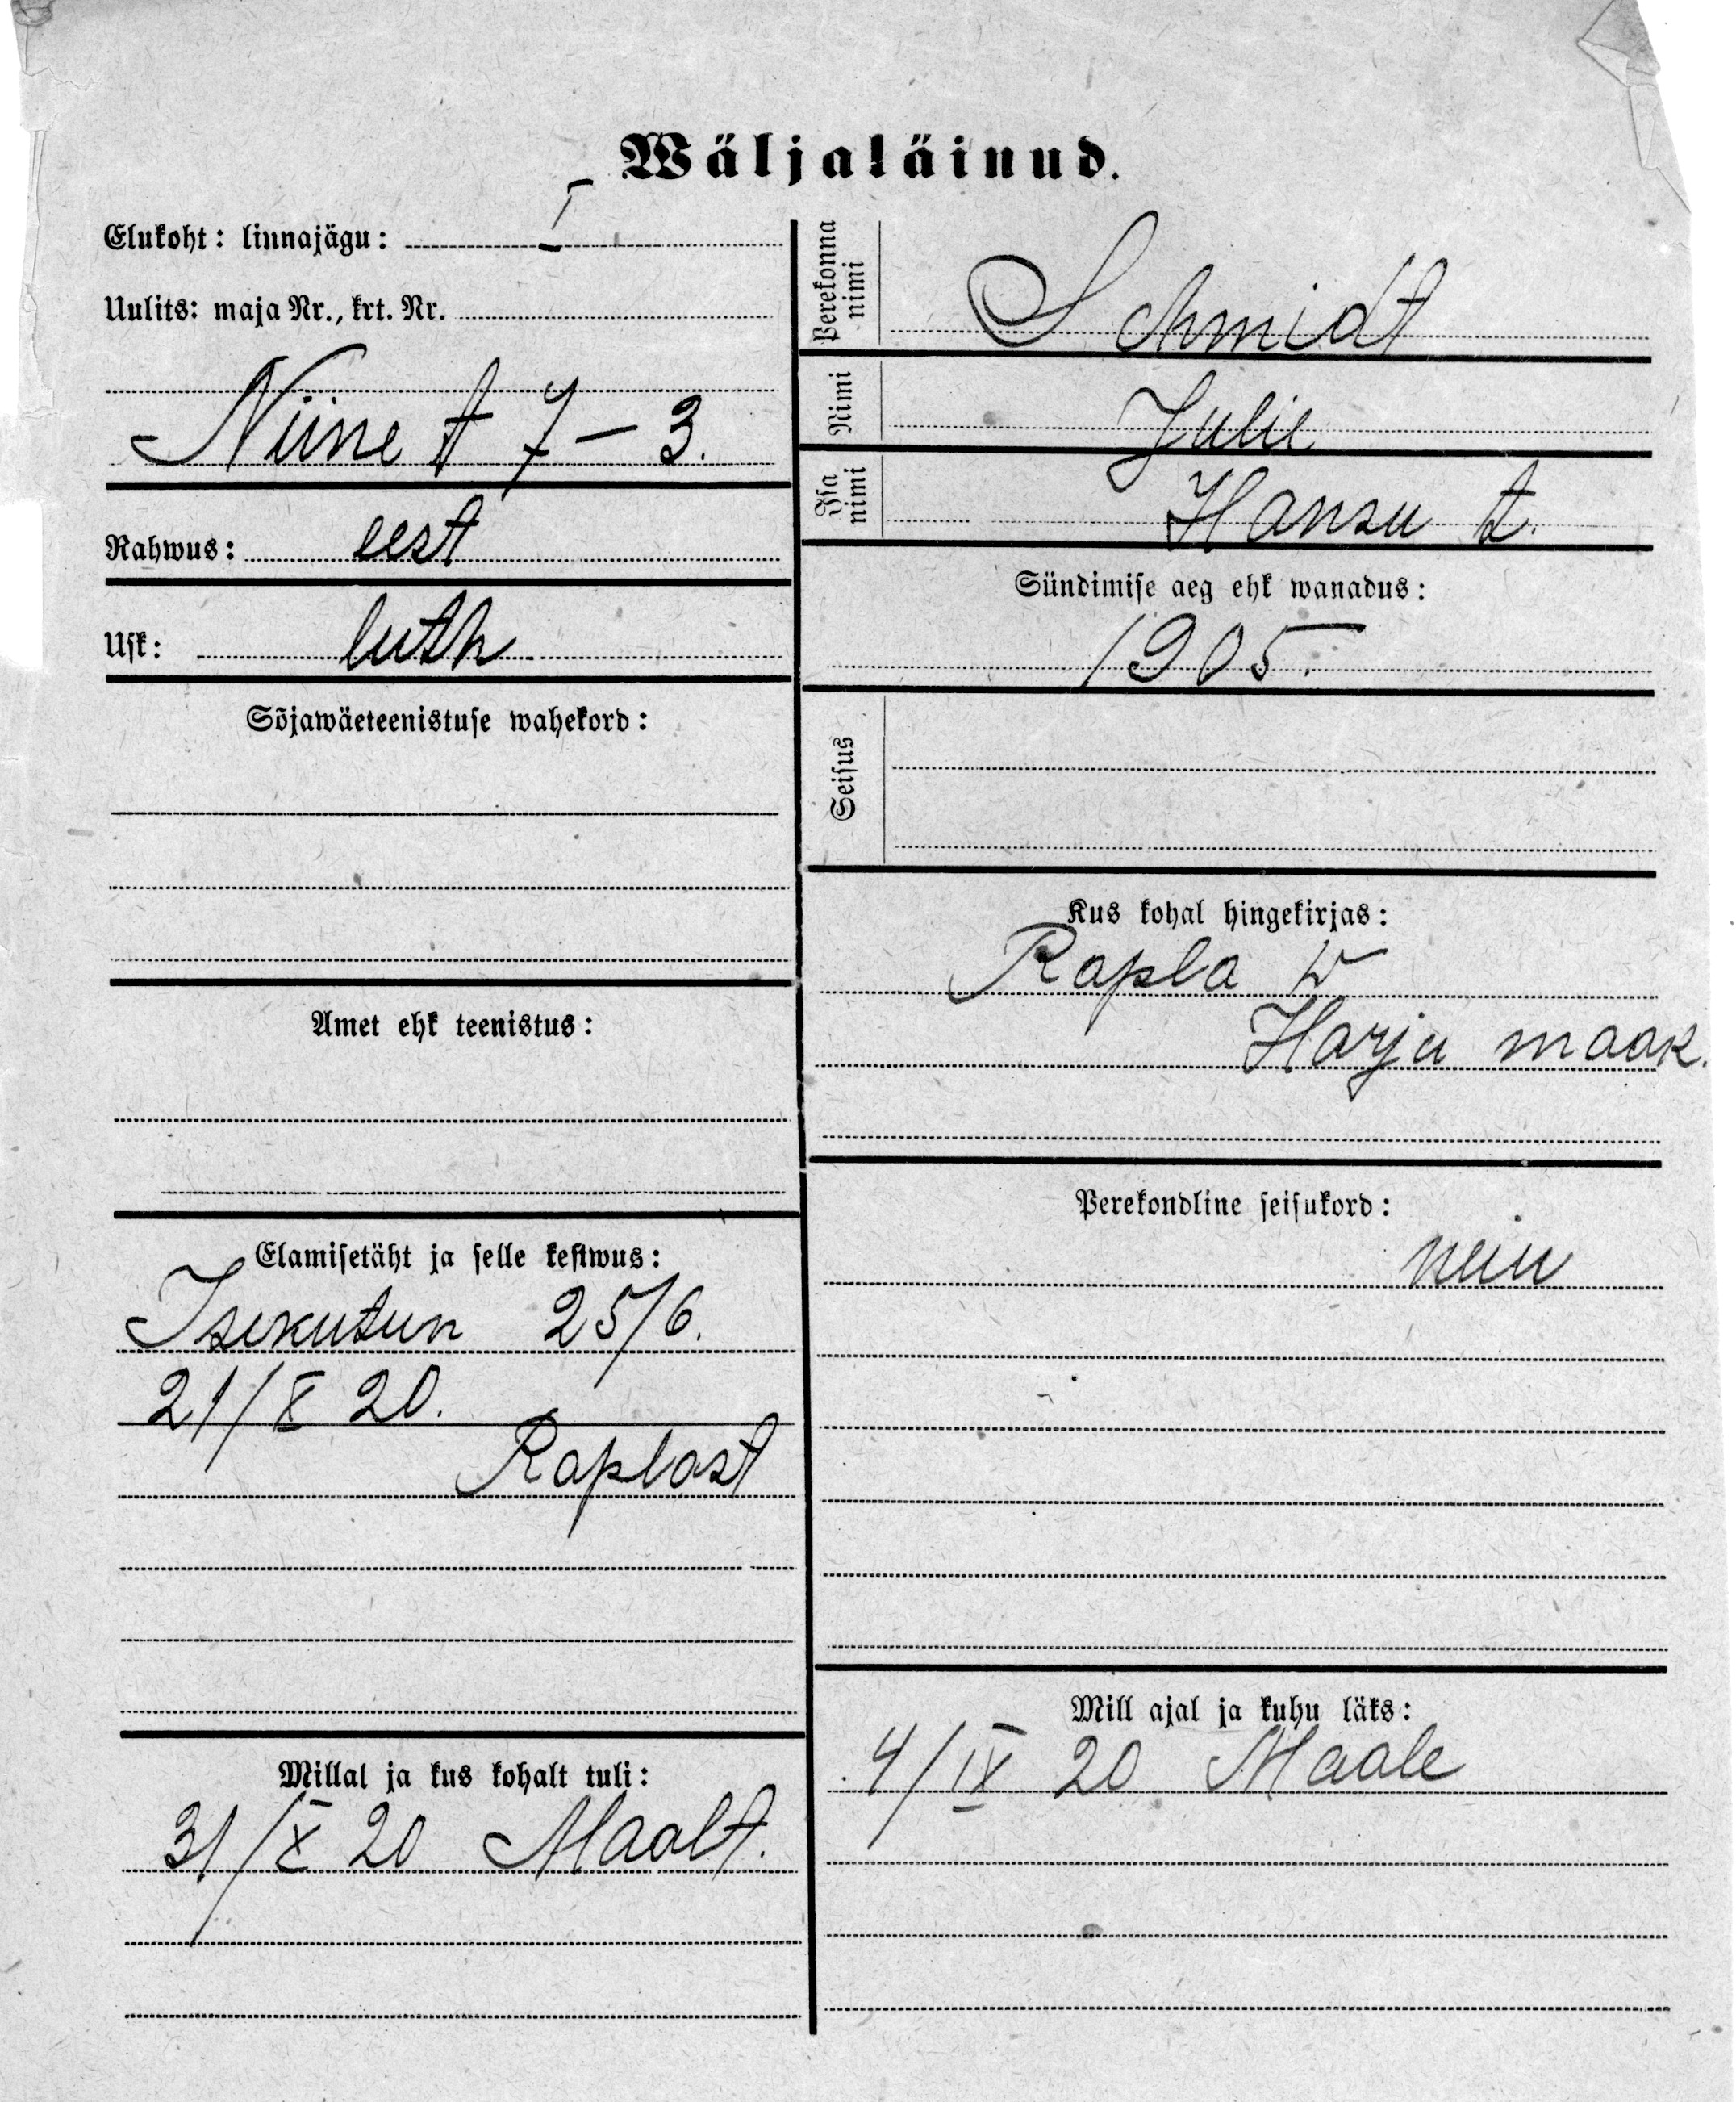 Wäljaläinud.
Elukoht: linnajägu: I
Uulits: maja Nr., krt. Nr.
Niine t 7 – 3.
Rahwus: eest
Usk: luth
Sõjawäeteenistuse wahekord:
Amet ehk teenistus:
Elamisetäht ja selle kestwus:
Isikutun 25/6.
21/X 20.
Raplast
Millal ja kus kohalt tuli:
31/X 20 Maalt.
Perekonna nimi Schmidt
Nimi Julie
Isa nimi Hansu t.
Sündimise aeg ehk wanadus:
1905.
Seisus
Kus kohal hingekirjas:
Rapla w
Harju maak.
Perekondline seisukord:
neiu
Mill ajal ja kuhu läks:
4/IX 20 Maale